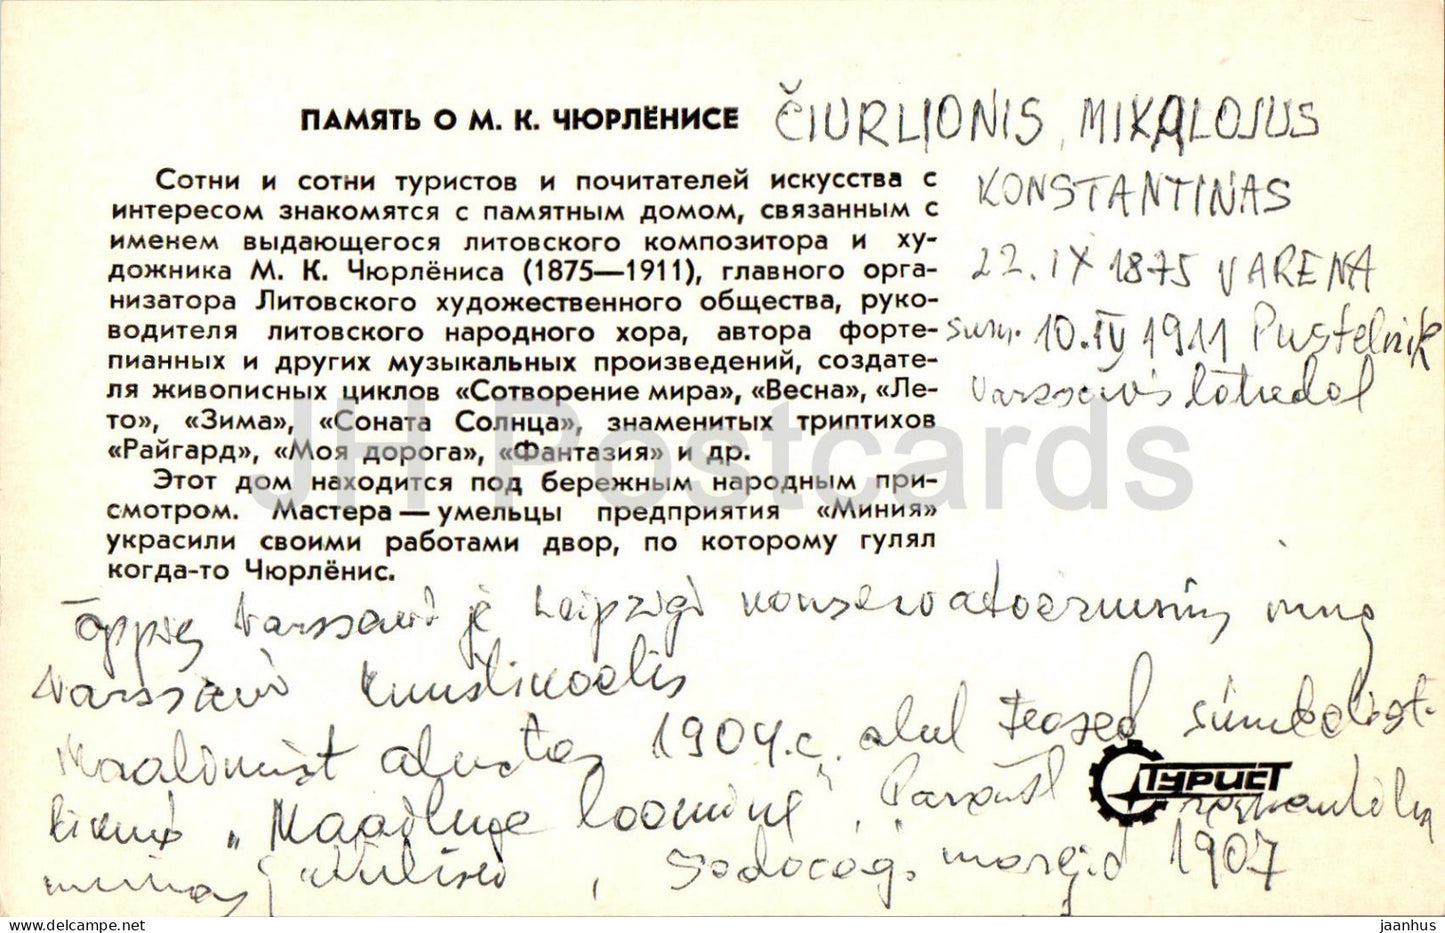 ПАМЯТЬ О М. К. ЧЮРЛЁНИСЕ
ČIURLIONIS, MIKALOJUS
KONSTANTINAS
22. IX 1875 VARENA
sur. 10. IV 1911 Pustelnik
Varssavis lähedal
Сотни и сотни туристов и почитателей искусства с
интересом знакомятся с памятным домом, связанным с
именем выдающегося литовского композитора и ху-
дожника М. К. Чюрлёниса (1875—1911), главного орга-
низатора Литовского художественного общества, руко-
водителя литовского народного хора, автора форте-
пианных и других музыкальных произведений, создате-
ля живописных циклов «Сотворение мира», «Весна», «Ле-
то», «Зима», «Соната Солнца», знаменитых триптихов
«Райгард», «Моя дорога», «Фантазия» и др.
Этот дом находится под бережным народным при-
смотром. Мастера — умельцы предприятия «Миния»
украсили своими работами двор, по которому гулял
когда-то Чюрлёнис.
õppis Varssavi ja Leipzigi konservatooriumis ning
Varssavi kunstikoolis
Maalimist alustas 1904. a. alul teosed sümbolist-
likud „Maailma loomine", Pärast
1907
ТУРИСТ
JH Postcards
jaanhus